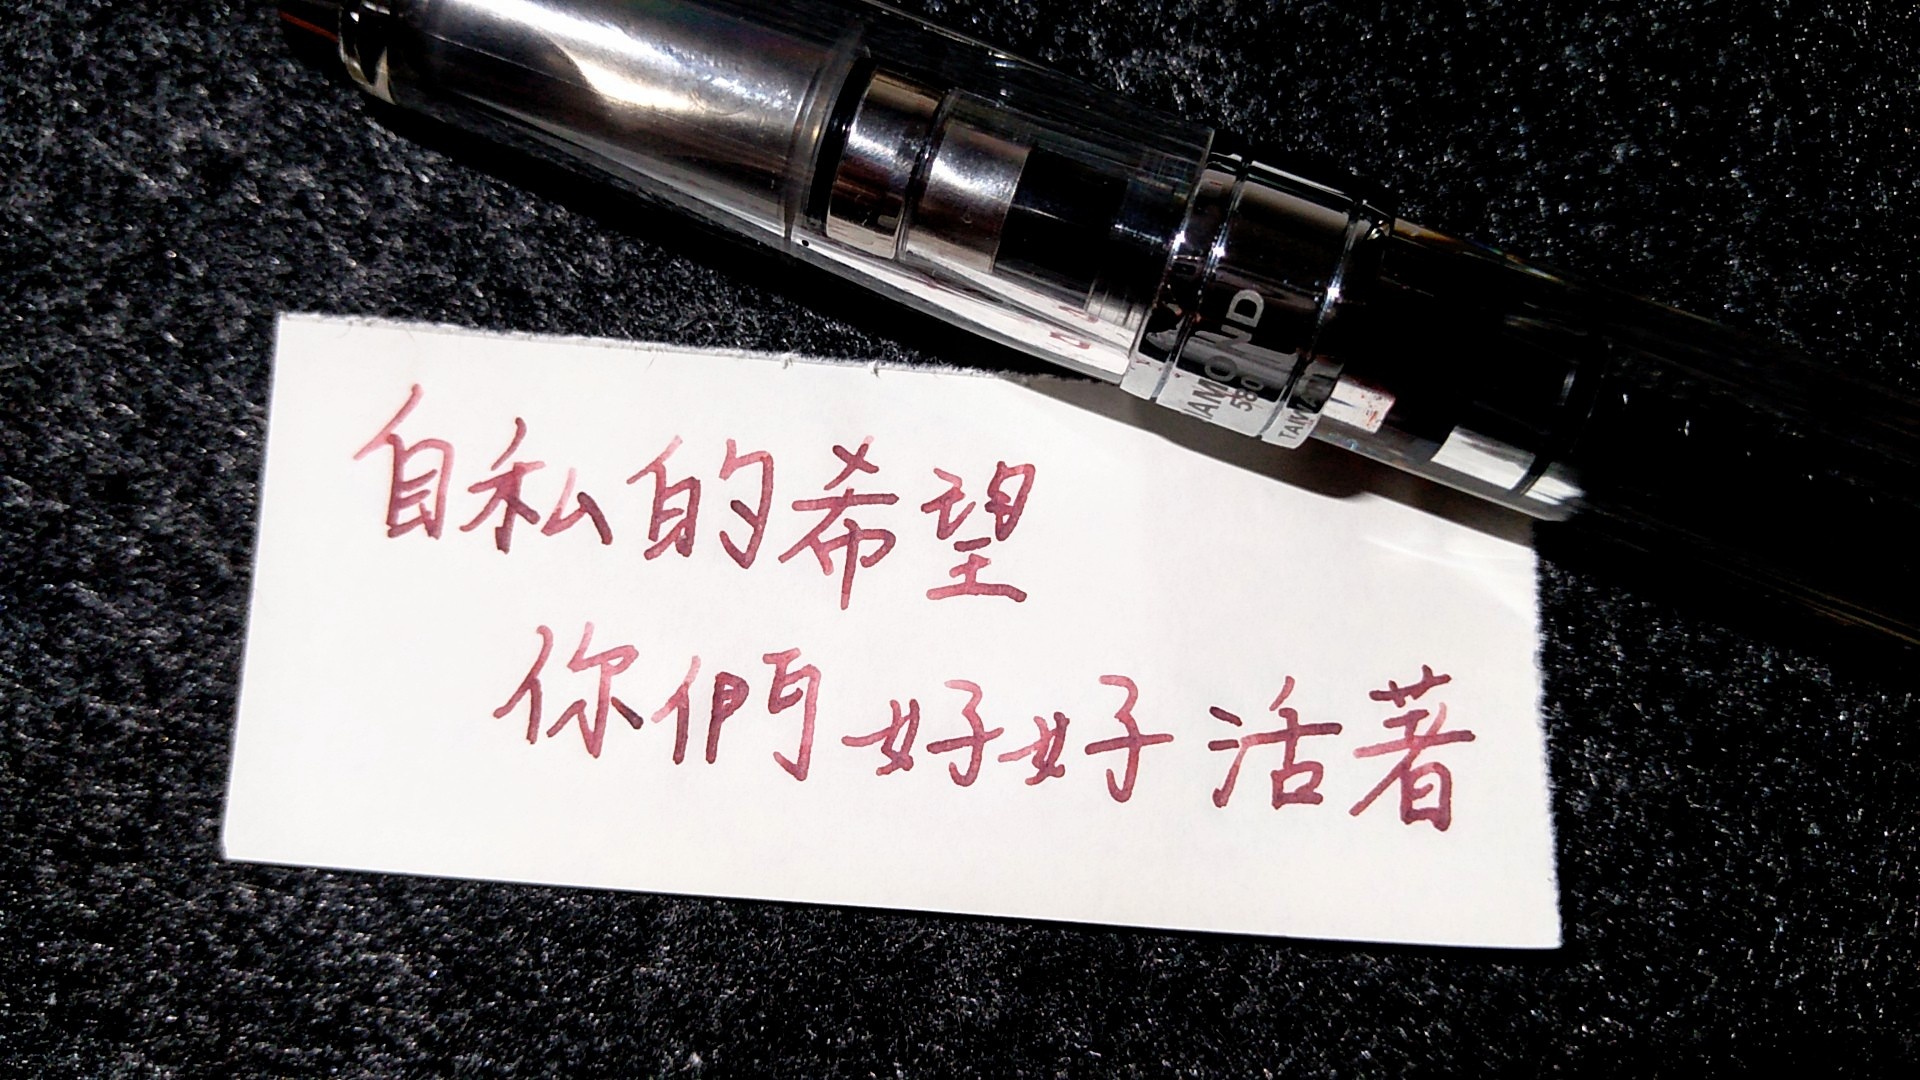 自私的希望
你們好好活著
IAMOND
580
TAIW